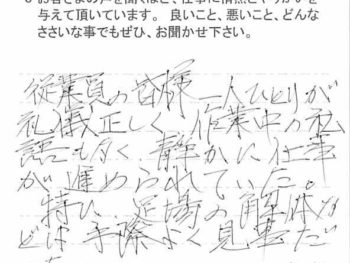 お客さまの声を聞くほど、仕事に情熱とやりがいを
与えて頂いています。 良いこと、悪いこと、どんな
ささいな事でもぜひ、お聞かせ下さい。
従業員の皆様一人ひとりが
礼儀正しく、作業中の私
語も なく、静かに仕事
が進められていた。
特に、足場の解体な
どは手際よく見事だ